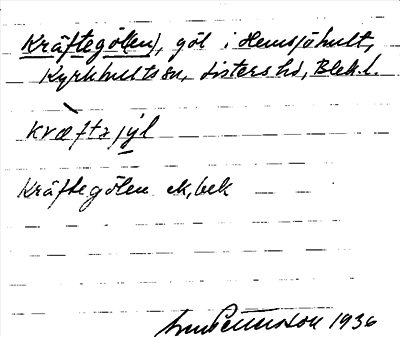 Kräftegöl(en), göl i Hemsjöhult,
Kyrkhults sn, Listers hd, Blek. l.
kræ̀ftəjyl
Kräftegölen ek, bek
Pettersson 1936